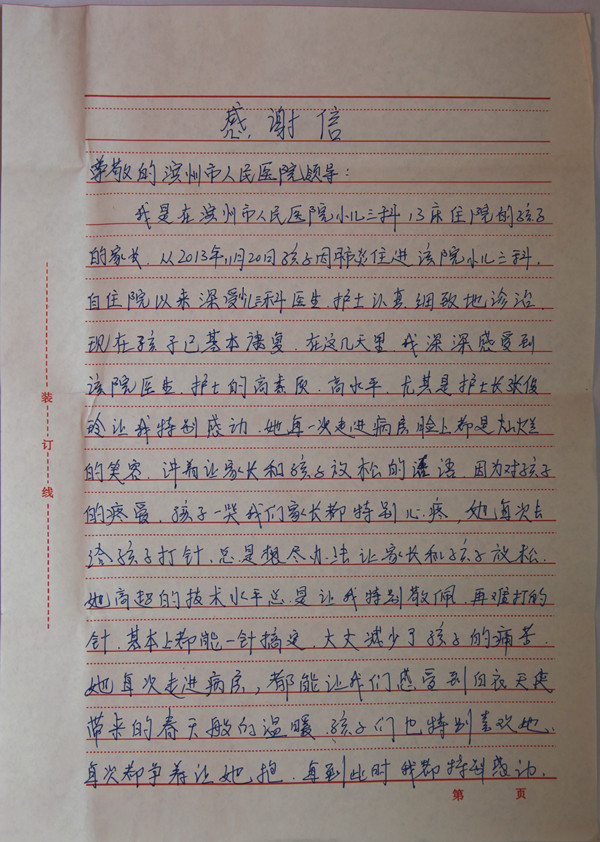 感谢信
尊敬的滨州市人民医院领导：
我是在滨州市人民医院小儿三科13床住院的孩子
的家长，从2013年11月20日孩子因肺炎住进该院小儿三科，
自住院以来深受儿三科医生、护士认真、细致地诊治，
现在孩子已基本康复。在这几天里，我深深感受到
该院医生、护士的高素质、高水平，尤其是护士长张俊
玲让我特别感动，她每一次走进病房脸上都是灿烂
的笑容，讲着让家长和孩子放松的话语，因为对孩子
的疼爱，孩子一哭我们家长都特别心疼，她每次去
给孩子打针，总是想尽办法让家长和孩子放松。
她高超的技术水平总是让我特别敬佩，再难打的
针，基本上都能一针搞定，大大减少了孩子的痛苦。
她每次走进病房，都能让我们感受到白衣天使
带来的春天般的温暖，孩子们也特别喜欢她，
每次都争着让她抱，每到此时我都特别感动，
装
订
线
第 页